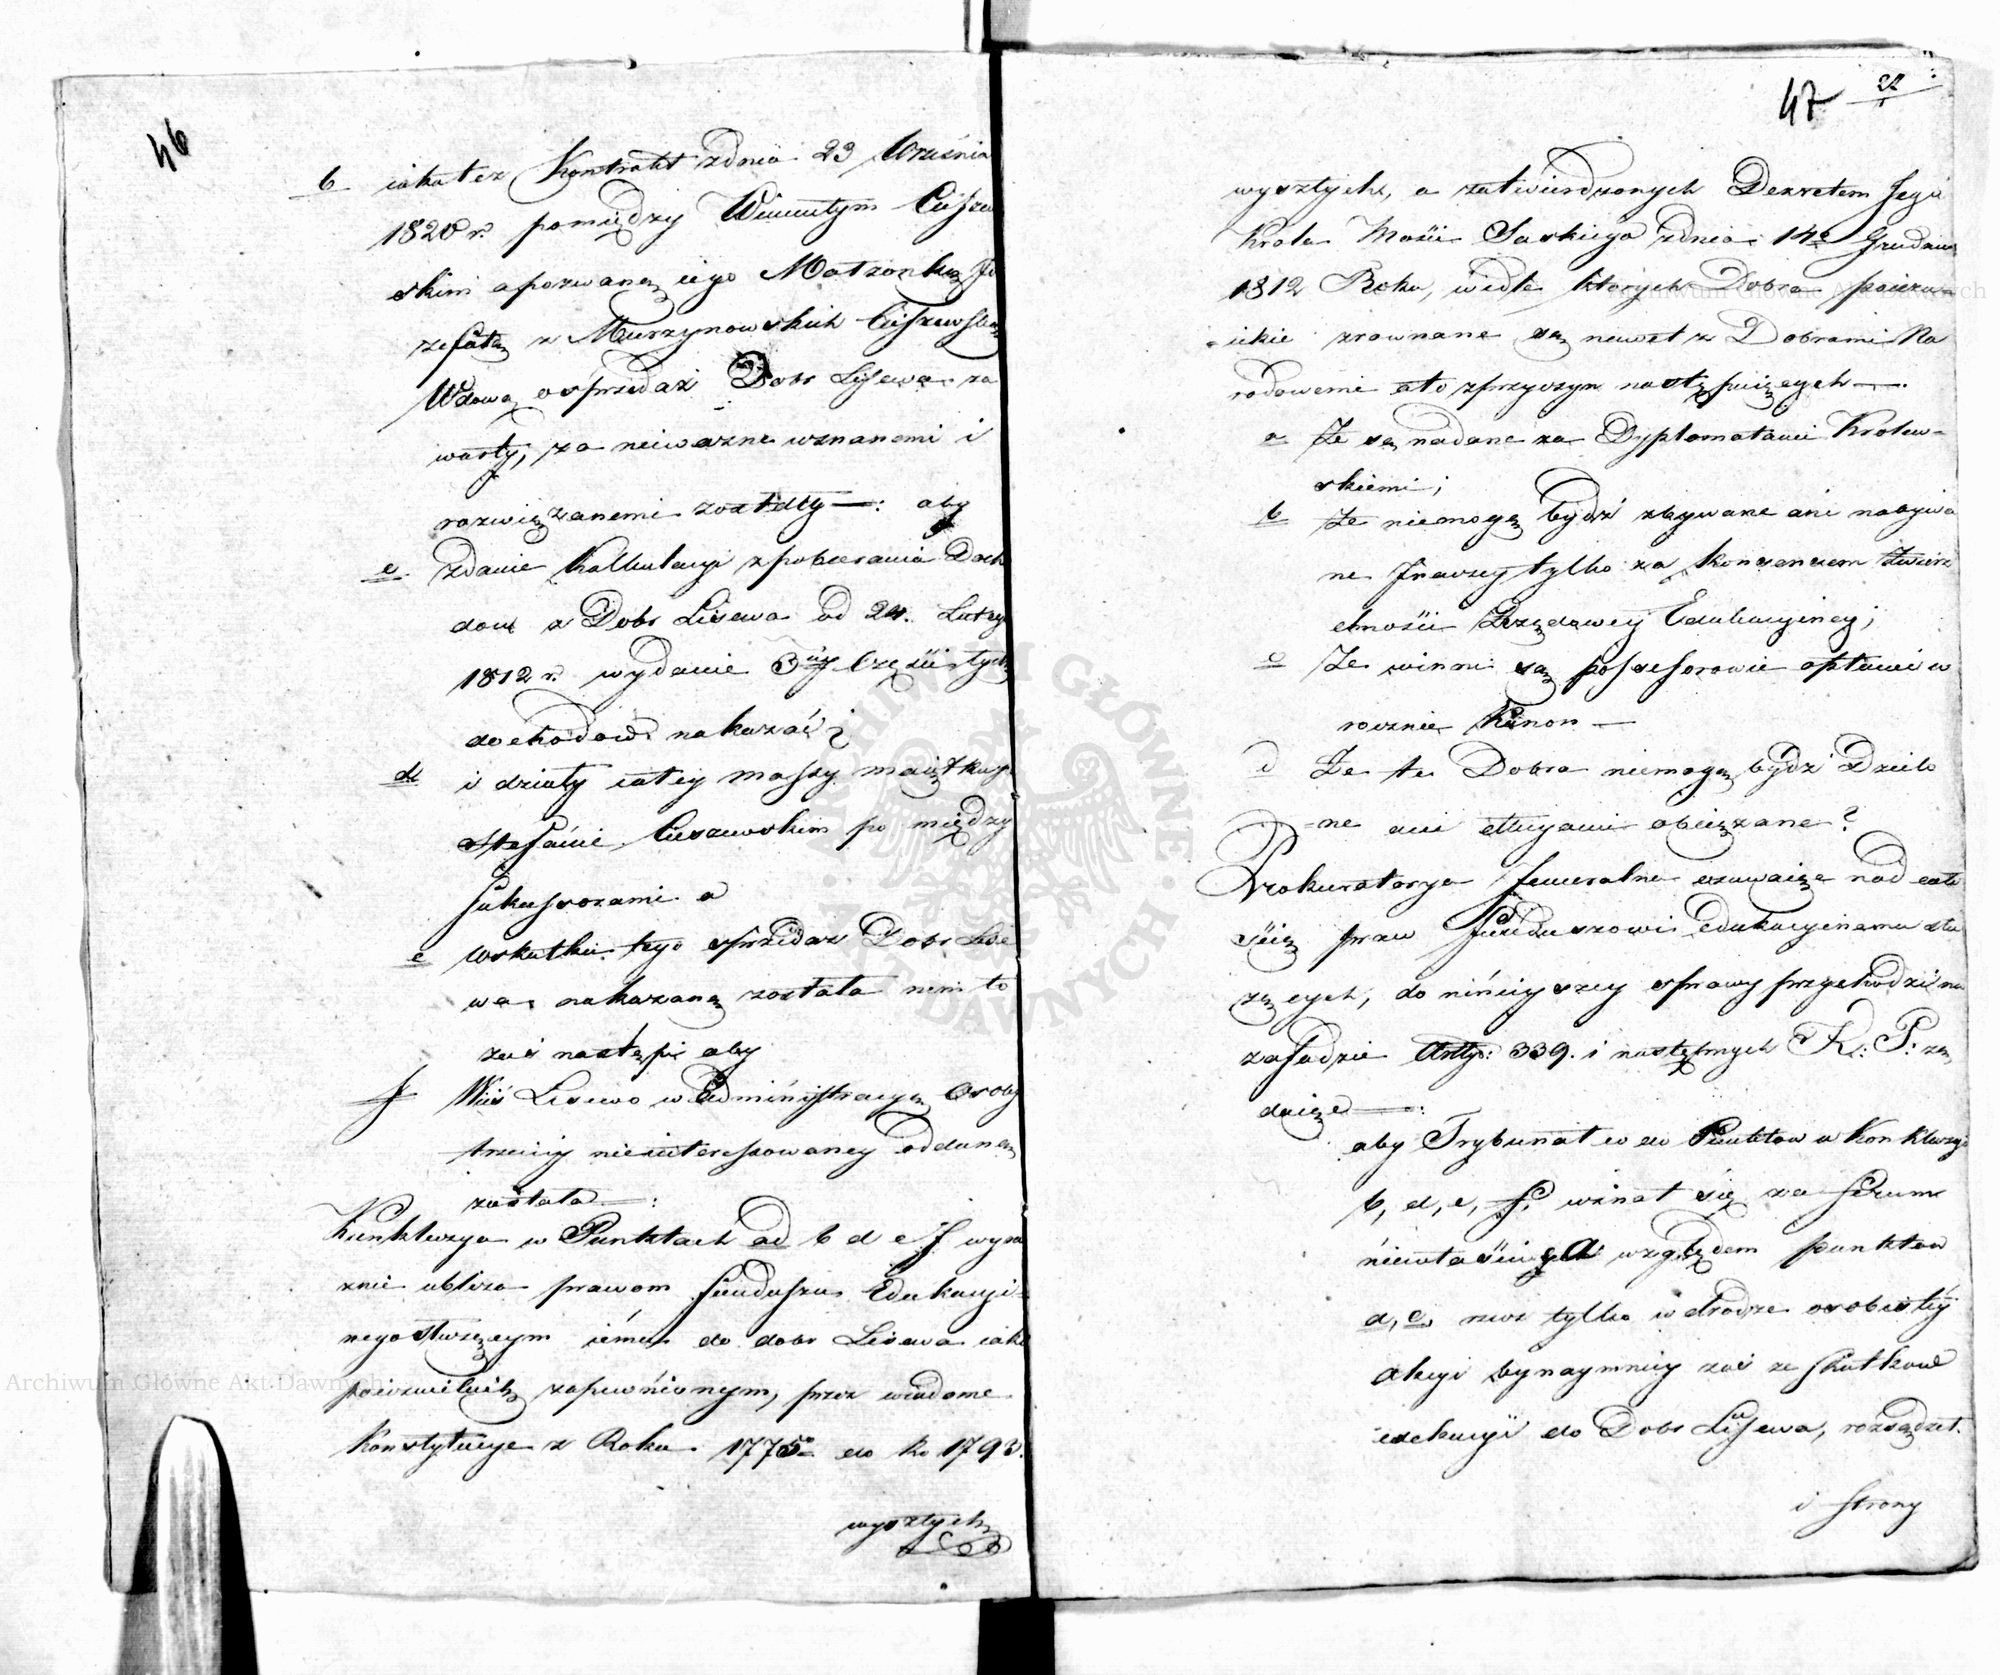 46
b iakotez Kontrakt zdnia 23 Września
1820 r. pomiędzy Wincentym Ciszew
skim apozwaną iego Małzonką Jo
zefatą z Murzynowskich Ciszewską
Wdową osprzedaż Dobr Lisewa za
warty, za nieważne uznanemi i
rozwiązanemi zostały —: aby
c zdanie Kalkulacyi zpobierania Doch
dow z Dobr Lisewa od 24. Lutego
1812 r. wydanie 3ciey Części tych
dochodow nakazać;
d i działy całey massy maiątkowey
Stefanie Ciszewskim po między
Sukcessorami a
e wskutku tego sprzedaz Dobr Lise
wa nakazaną została nim to
zaś nastąpi aby
f Wieś Lisewo w Administracyą Osoby
trzeciey nieinteressowaney oddaną
została —:
Konkluzya w Punktach ad b d e f. wyra
znie ubliza prawom Funduszu Edukacyi-
nego służącym iemu do dobr Lisewa iako
poiezuickich zapewnionym, przez wiadome
Konstytucye z Roku 1775o do Ro 1793.
wyszłych
47 22
wyszłych, a zatwierdzonych Dekretem Jego
Krola Mości Saskiego zdnia 14o Grudnia
1812 Roku, wedle ktorych Dobra poiezu-
ickie zrownane są nawet z Dobrami Na
rodowemi ato zprzyczyn następuiących —.
a Ze są nadane za Dyplomatami Krolew-
skiemi;
b Ze niemogą bydź zbywane ani nabywa
ne Jnaczey tylko za konsensem Zwierz
chności Rządowey Edukacyiney;
c Ze winni są possessorowie opłacać
rocznie Kanon —
d Ze te Dobra niemogą bydź Dzielo
-ne ani długami obciążane?
Prokuratorya Jeneralna czuwaiąc nad cało
ścią praw Funduszowi Edukacyinemu słu
zących, do ninieyszey sprawy przychodzi na
zasadzie Artyo: 339. i następnych K: P: żą
daiąc —:
aby Trybunał co do Punktow w Konkluzyi
b, d, e, f, uznał się za forum
niewłaściwe a względem punktow
a, c, rzecz tylko w drodze osobistéy
akcyi bynaymniey zaś ze skutkow
exekucyi do Dobr Lisewa, rozsądzał.
i Strony
Archiwum Główne Akt Dawnych
Archiwum Główne Akt Dawnych
ARCHIWUM GŁÓWNE • AKT DAWNYCH •